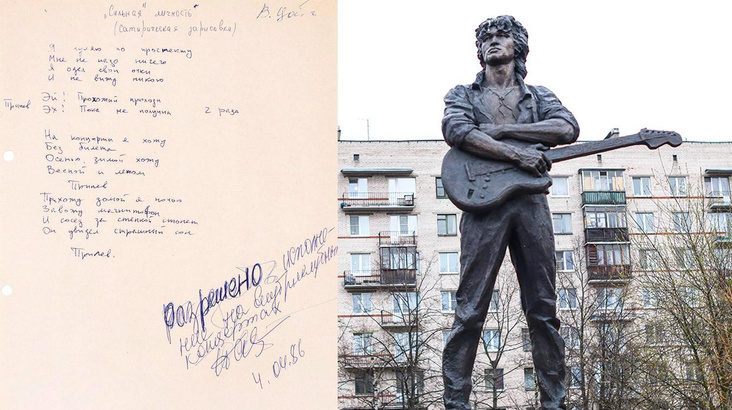 „Сильная" личность"
В. Цой
(сатирическая зарисовка)
Я гуляю по проспекту
Мне не надо ничего
Я одел свои очки
И не вижу никого
Эй! Прохожий проходи
Припев Эх! Пока не получил 2 раза
На концерты я хожу
Без билета
Осенью, зимой хожу
Весной и летом
Припев
Прихожу домой я ночью
Завожу магнитофон
И сосед за стенкой стонет
Он увидел страшный сон
Припев.
разрешено к исполне-
нию на
концертах
4.04.86